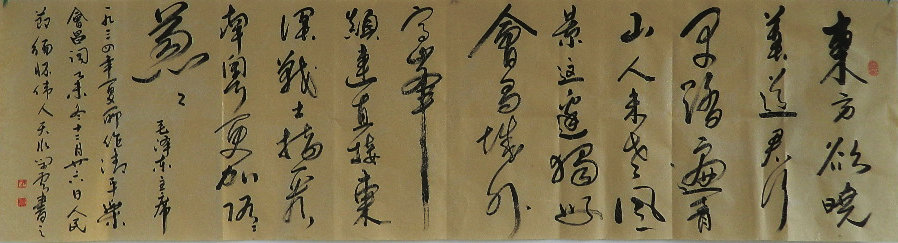 東方欲曉
莫道君行
早踏遍青
山人未老風
景這邊獨好
會昌城外
高峯
顛連直接東
溟戰士指看
南粵更加郁々
葱々
毛澤東主席
一九三四年夏所作清平樂
會昌詞乙未冬十二月廿六日人民
緬懷偉人天水雲書之